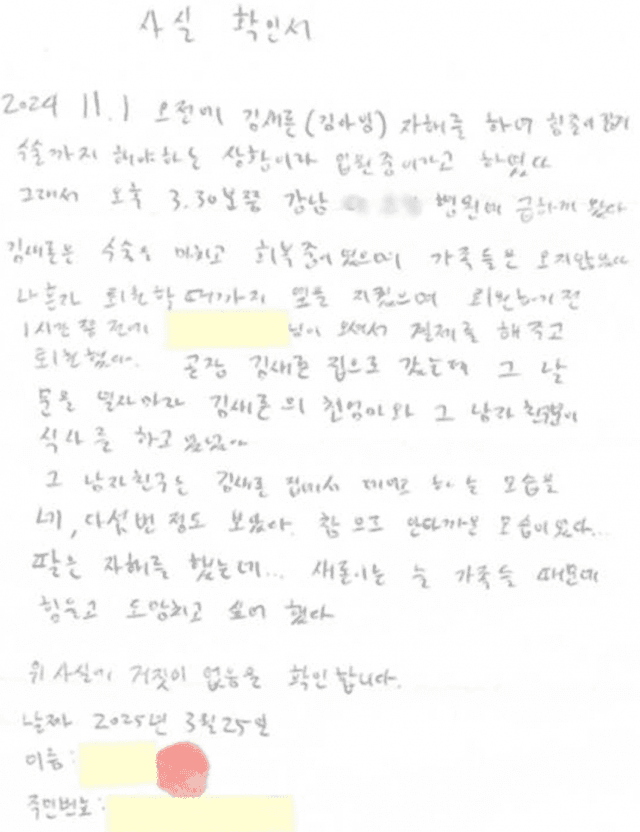 사실 확인서
2024 11.1 오전에 김새론(김아임) 자해를 하여 힘줄이 끊겨
수술까지 해야하는 상황이라 입원중이라고 하였다
그래서 오후 3.30분쯤 강남 병원에 급하게 왔다
김새론은 수술을 마치고 회복중이었으며 가족들은 오지않았다
나 혼자 퇴원할때까지 옆을 지켰으며 퇴원하기전
1시간 쯤 전에 님이 오셔서 결제를 해주고
퇴원했다. 곧장 김새론 집으로 갔는데 그 날
문을 열자마자 김새론의 친엄마와 그 남자친구분이
식사를 하고 있었다
그 남자친구는 김새론 집에서 데면 하는 모습을
네, 다섯번 정도 보았다. 참으로 안타까운 모습이었다...
팔은 자해를 했는데... 새론이는 늘 가족들 때문에
힘들고 도망치고 싶어 했다
위 사실에 거짓이 없음을 확인합니다.
날짜 2025년 3월25일
이름:
주민번호: